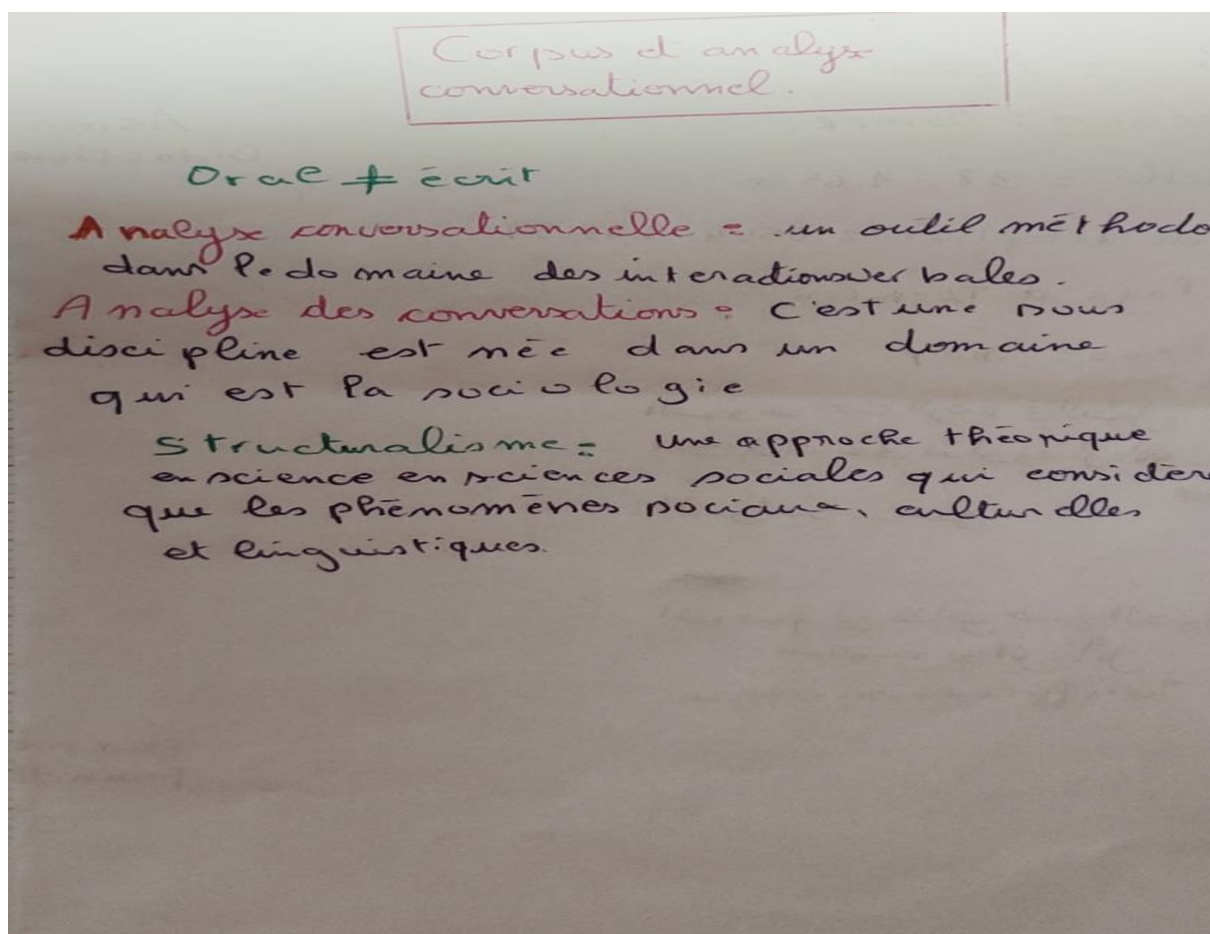 Corpus et analyse
conversationnel.
Oral ≠ écrit
Analyse conversationnelle = un outil méthodo
dans le domaine des interactions verbales.
Analyse des conversations : C'est une sous
discipline est née dans un domaine
qui est la sociologie
Structuralisme = une approche théorique
en science en sciences sociales qui considèr
que les phénomènes sociaux, culturelles
et linguistiques.